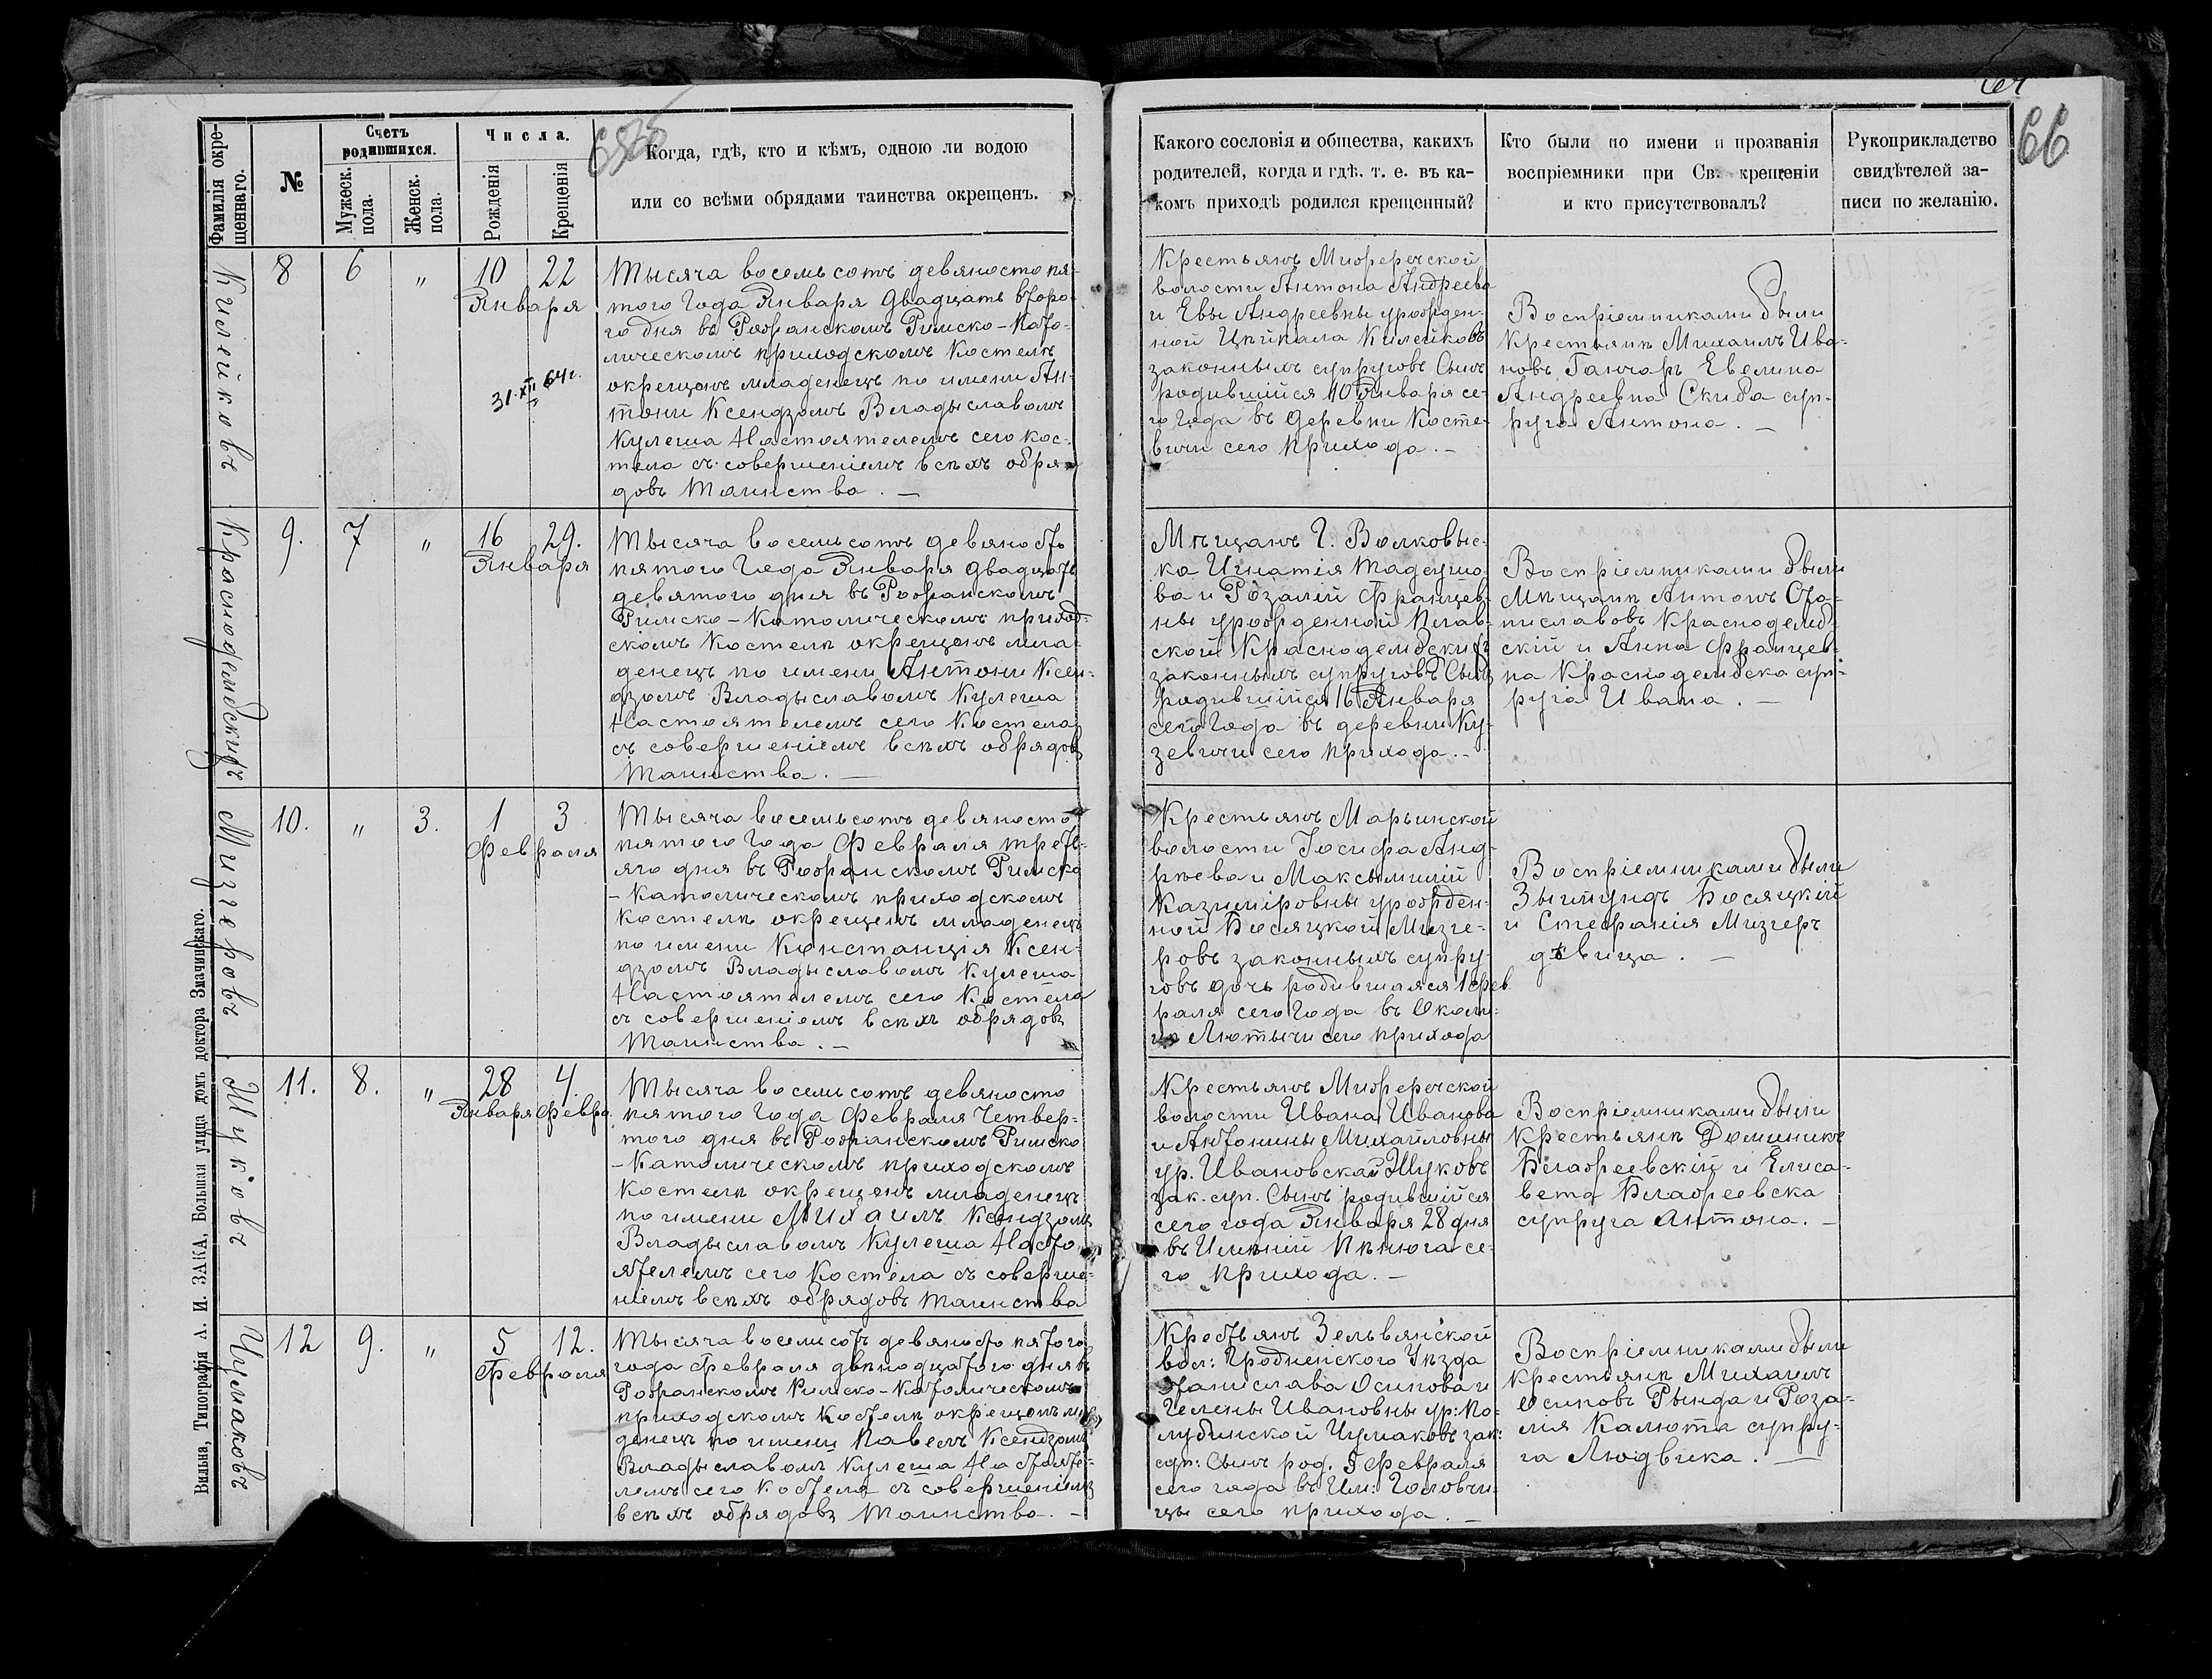 64
66
6570
Фамилія окре-
щеннаго.
№
Счетъ
родившихся.
Мужеск.
пола.
Женск.
пола.
Числа.
Рожденія
Крещенія
Когда, гдѣ, кто и кѣмъ, одною ли водою
или со всѣми обрядами таинства окрещенъ.
Какого сословія и общества, какихъ
родителей, когда и гдѣ. т. е. въ ка-
комъ приходѣ родился крещенный?
Кто были по имени и прозванія
воспріемники при Св. крещеніи
и кто присутствовалъ?
Рукоприкладство
свидѣтелей за-
писи по желанію.
Килейковъ
8
6
"
10
22
Января
31·XII 64 г.
Тысяча восемьсотъ девяносто пя-
того Года Января Двадцать второ-
го дня въ Рожанскомъ Римско-Като-
лическомъ приходскомъ Костелѣ
окрещенъ младенецъ по имени Ан-
тони Ксендзомъ Владыславомъ
Кулеша Настоятелемъ сего Кос-
тела съ совершеніемъ всѣхъ обря-
довъ Таинства. —
Крестьянъ Мижеречской
волости Антона Андреева
и Евы Андреевны урожден-
ной Цейкала Килейковъ
законныхъ супруговъ Сынъ
родившійся 10 Января се-
го Года въ Деревни Косте-
вичи сего прихода. —
Воспріемниками были
Крестьянѣ Михаилъ Ива-
новъ Ганчаръ Евелина
Андреевна Скиба суп-
руга Антона. —
Краснодембскихъ
9.
7
"
16
29.
Января
Тысяча восемьсотъ девяносто
пятого Года Января двадцать
девятого дня въ Рожанскомъ
Римско-Католическомъ приход-
скомъ Костелѣ окрещенъ мла-
денецъ по имени Антони Ксен-
дзомъ Владыславомъ Кулеша
Настоятелемъ сего Костела
съ совершеніемъ всѣхъ обрядовъ
Таинства. —
Мѣщанъ Г. Волковыс-
ка Игнатія Тадеушо-
ва и Розаліи Францев-
ны урожденной Плав-
ской Краснодембскихъ
законныхъ супруговъ Сынъ
родившійся 16 Января
сего Года въ деревни Ку-
зевичи сего прихода. —
Воспріемниками были
Мѣщанѣ Антонъ Ста-
ниславовъ Краснодемб-
скій и Анна Францев-
на Краснодембска суп-
руга Ивана. —
Мизгеровъ
10.
"
3.
1
3
Февраля
Тысяча восемьсотъ девяносто
пятого Года Февраля треть-
яго дня въ Рожанскомъ Римско
-Католическомъ приходскомъ
Костелѣ окрещенъ младенецъ
по имени Констанція Ксен-
дзомъ Владыславомъ Кулеша
Настоятелемъ сего Костела
съ совершеніемъ всѣхъ обрядовъ
Таинства. —
Крестьянъ Марьинской
волости Іосифа Анд-
рѣева и Максыминіи
Казиміровны урожден-
ной Босяцкой Мизге-
ровъ законныхъ супру-
говъ дочь родившаяся 1 Фев-
раля сего Года въ Околи-
цѣ Лютычи сего прихода
Воспріемниками были
Зыгмундъ Босяцкій
и Стефанія Мизгеръ
дѣвица. —
Жуковъ
11.
8.
"
28
4.
Января Февра.
Тысяча восемьсотъ девяносто
пятого Года Февраля Четвер-
того дня въ Рожанскомъ Римско
-Католическомъ приходскомъ
Костелѣ окрещенъ младенецъ
по имени Михаилъ Ксендзомъ
Владыславомъ Кулеша Насто-
ятелемъ сего Костела съ соверше-
ніемъ всѣхъ обрядовъ Таинства
Крестьянъ Мижеречской
волости Ивана Иванова
и Антонины Михайловны
ур. Ивановской Жуковъ
зак. суп. Сынъ родившійся
сего года Января 28 дня
въ Имѣніи Пѣнюга се-
го прихода. —
Воспріемниками были
Крестьянѣ Доминикъ
Блажеевскій и Елиса-
вета Блажеевска
супруга Антона. —
Чумаковъ
12
9.
"
5
12.
Февраля
Тысяча восемьсотъ девяносто пятого
года Февраля двѣнадцатого дня въ
Рожанскомъ Римско-Католическомъ
приходскомъ Костелѣ окрещенъ мла-
денецъ по имени Павелъ Ксендзомъ
Владыславомъ Кулеша Настояте-
лемъ сего Костела съ совершеніемъ
всѣхъ обрядовъ Таинства. —
Крестьянъ Зельвянской
вол: Гродненского Уѣзда
Станислава Осипова и
Гелены Ивановны ур: Го-
лубинской Чумаковъ зак:
суп: Сынъ род. 5 Февраля
сего года въ Им: Головчи-
цы сего прихода. —
Воспріемниками были
Крестьянѣ Михаилъ
Осиповъ Рында и Роза-
лія Калюта супру-
га Людвика. —
Вильна, Типографія А. И. ЗАКА, Большая улица домъ доктора Змачинскаго.